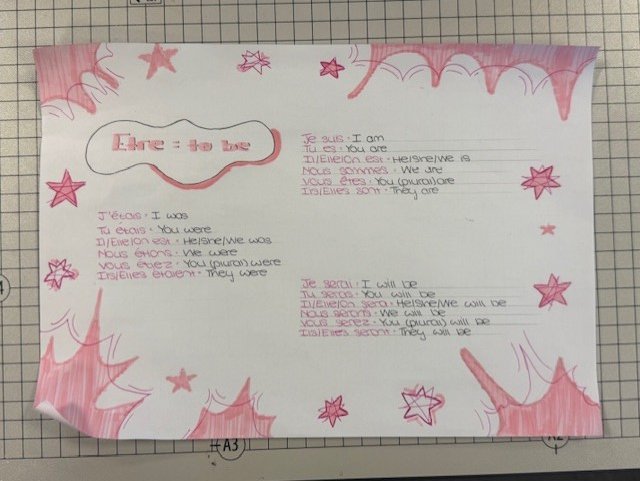 Etre = to be
J'étais · I was
Tu étais · You were
Il/Elle/On est · He/She/We was
Nous étions · We were
Vous étiez · You (plural) were
Ils/Elles étaient · They were
Je suis · I am
Tu es · You are
Il/Elle/On est · He/She/We is
Nous sommes · We are
Vous êtes · You (plural) are
Ils/Elles sont · They are
Je serai · I will be
Tu seras · You will be
Il/Elle/On sera · He/She/We will be
Nous serons · We will be
Vous serez · You (plural) will be
Ils/Elles seront · They will be
A3
A2